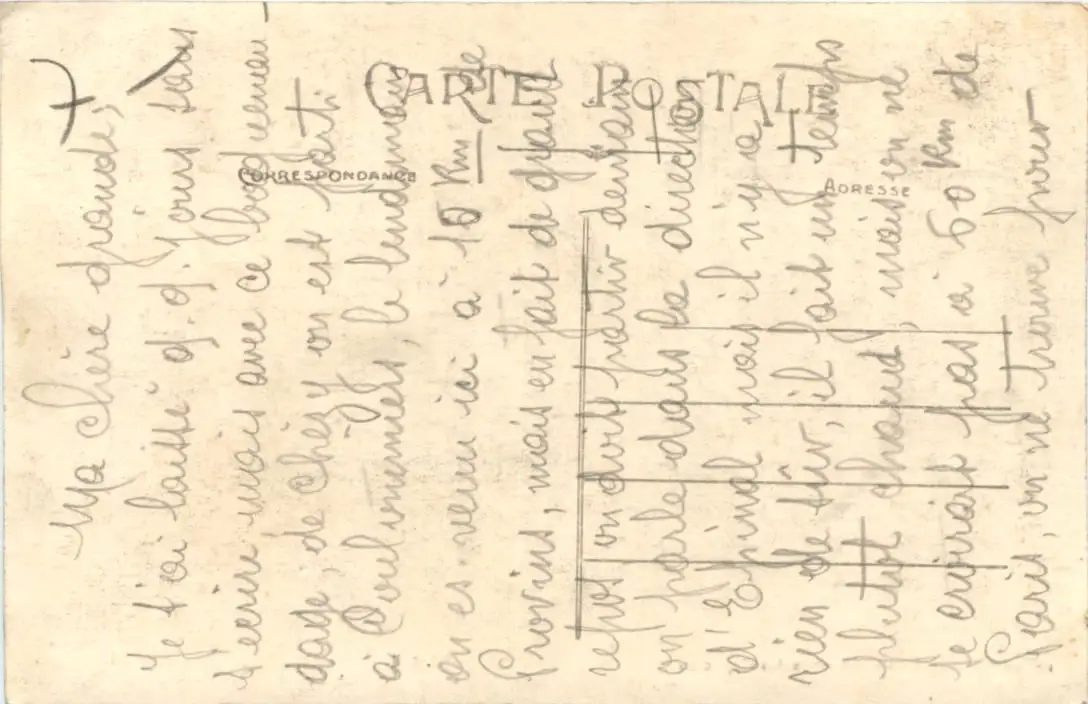 CARTE POSTALE
CORRESPONDANCE
ADRESSE
Ma Chère grande,
Je t'ai laissé q.q. jours sans
t'écrire mais avec ce
dage, de Chézy on est parti
à Coulommiers, le lendemain
on es venu ici à 10 Km de
Provins, mais en fait de grand
repos on doit partir demain
on parle dans la direction
d'Epinal mais il n'y a
rien de sûr, il fait un temps
plutot chaud, mais on ne
se croirait pas à 60 Km de
Paris, on ne trouve pour